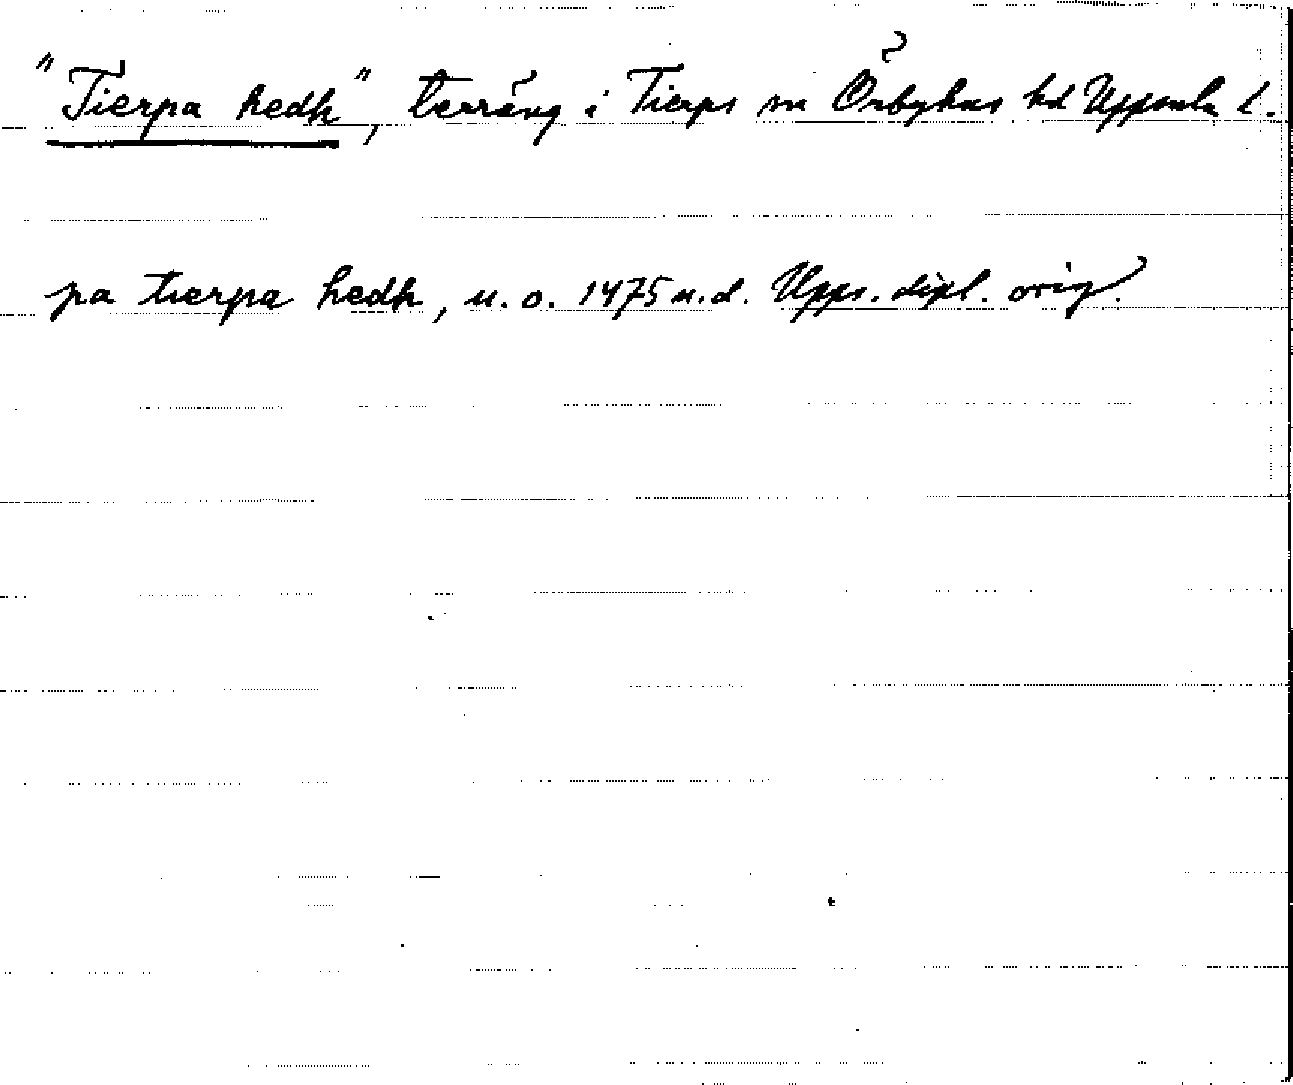 "Tierpa hedh", terräng i Tierps sn Örbyhus hd Uppsala l.
pa tierpa hedh, u. o. 1475 u. d. Upps. dipl. orig.